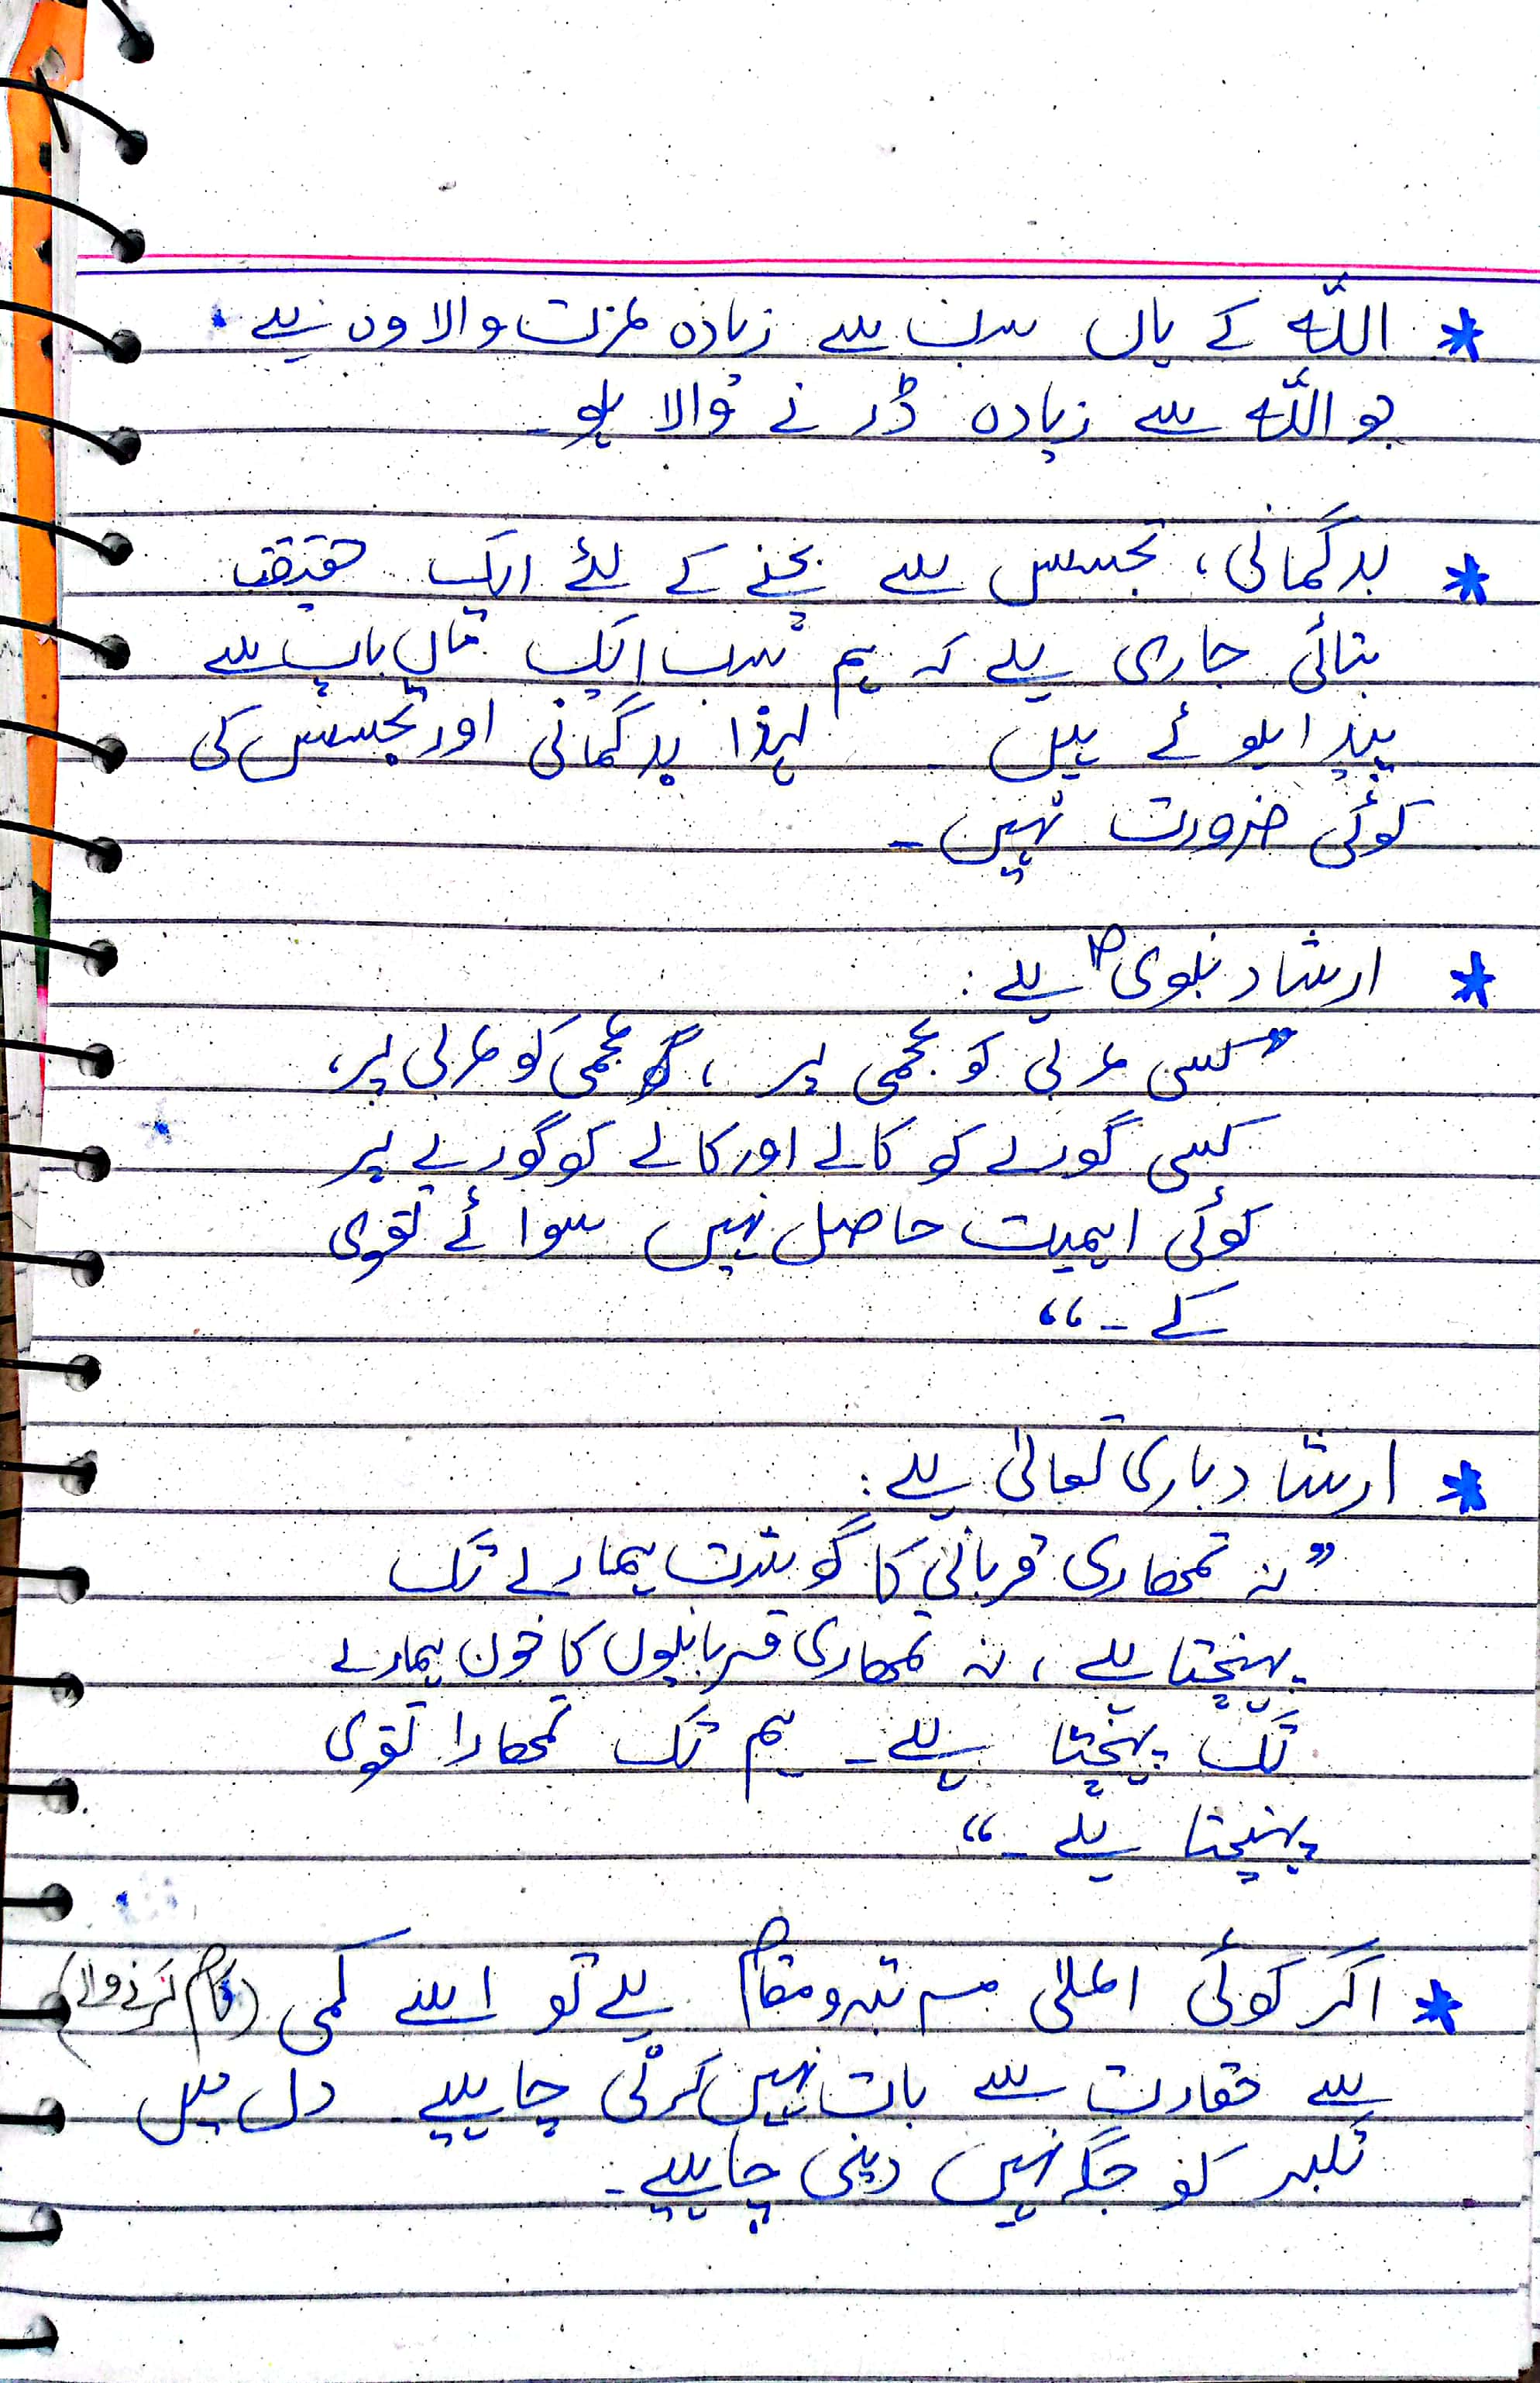 * اللہ کے ہاں سب سے زیادہ عزت والا وہ ہے
جو اللہ سے زیادہ ڈرنے والا ہو۔
* بدگمانی، تجسس سے بچنے کے لئے ایک حقیقت
بتائی جارہی ہے کہ ہم سب ایک ماں باپ سے
پیدا ہوئے ہیں۔ لہذا بدگمانی اور تجسس کی
کوئی ضرورت نہیں۔
* ارشاد نبویؐ ہے:
”کسی عربی کو عجمی پر، عجمی کو عربی پر،
کسی گورے کو کالے اور کالے کو گورے پر
کوئی اہمیت حاصل نہیں سوائے تقوی
کے۔“
* ارشاد باری تعالیٰ ہے:
”نہ تمھاری قربانی کا گوشت ہمارے تک
پہنچتا ہے، نہ تمھاری قربانیوں کا خون ہمارے
تک پہنچتا ہے۔ ہم تک تمھارا تقوی
پہنچتا ہے۔“
* اگر کوئی اعلیٰ مرتبہ و مقام ہے تو اسے کمی (کام کرنے والے)
سے حقارت سے بات نہیں کرنی چاہیے۔ دل میں
تکبر کو جگہ نہیں دینی چاہیے۔